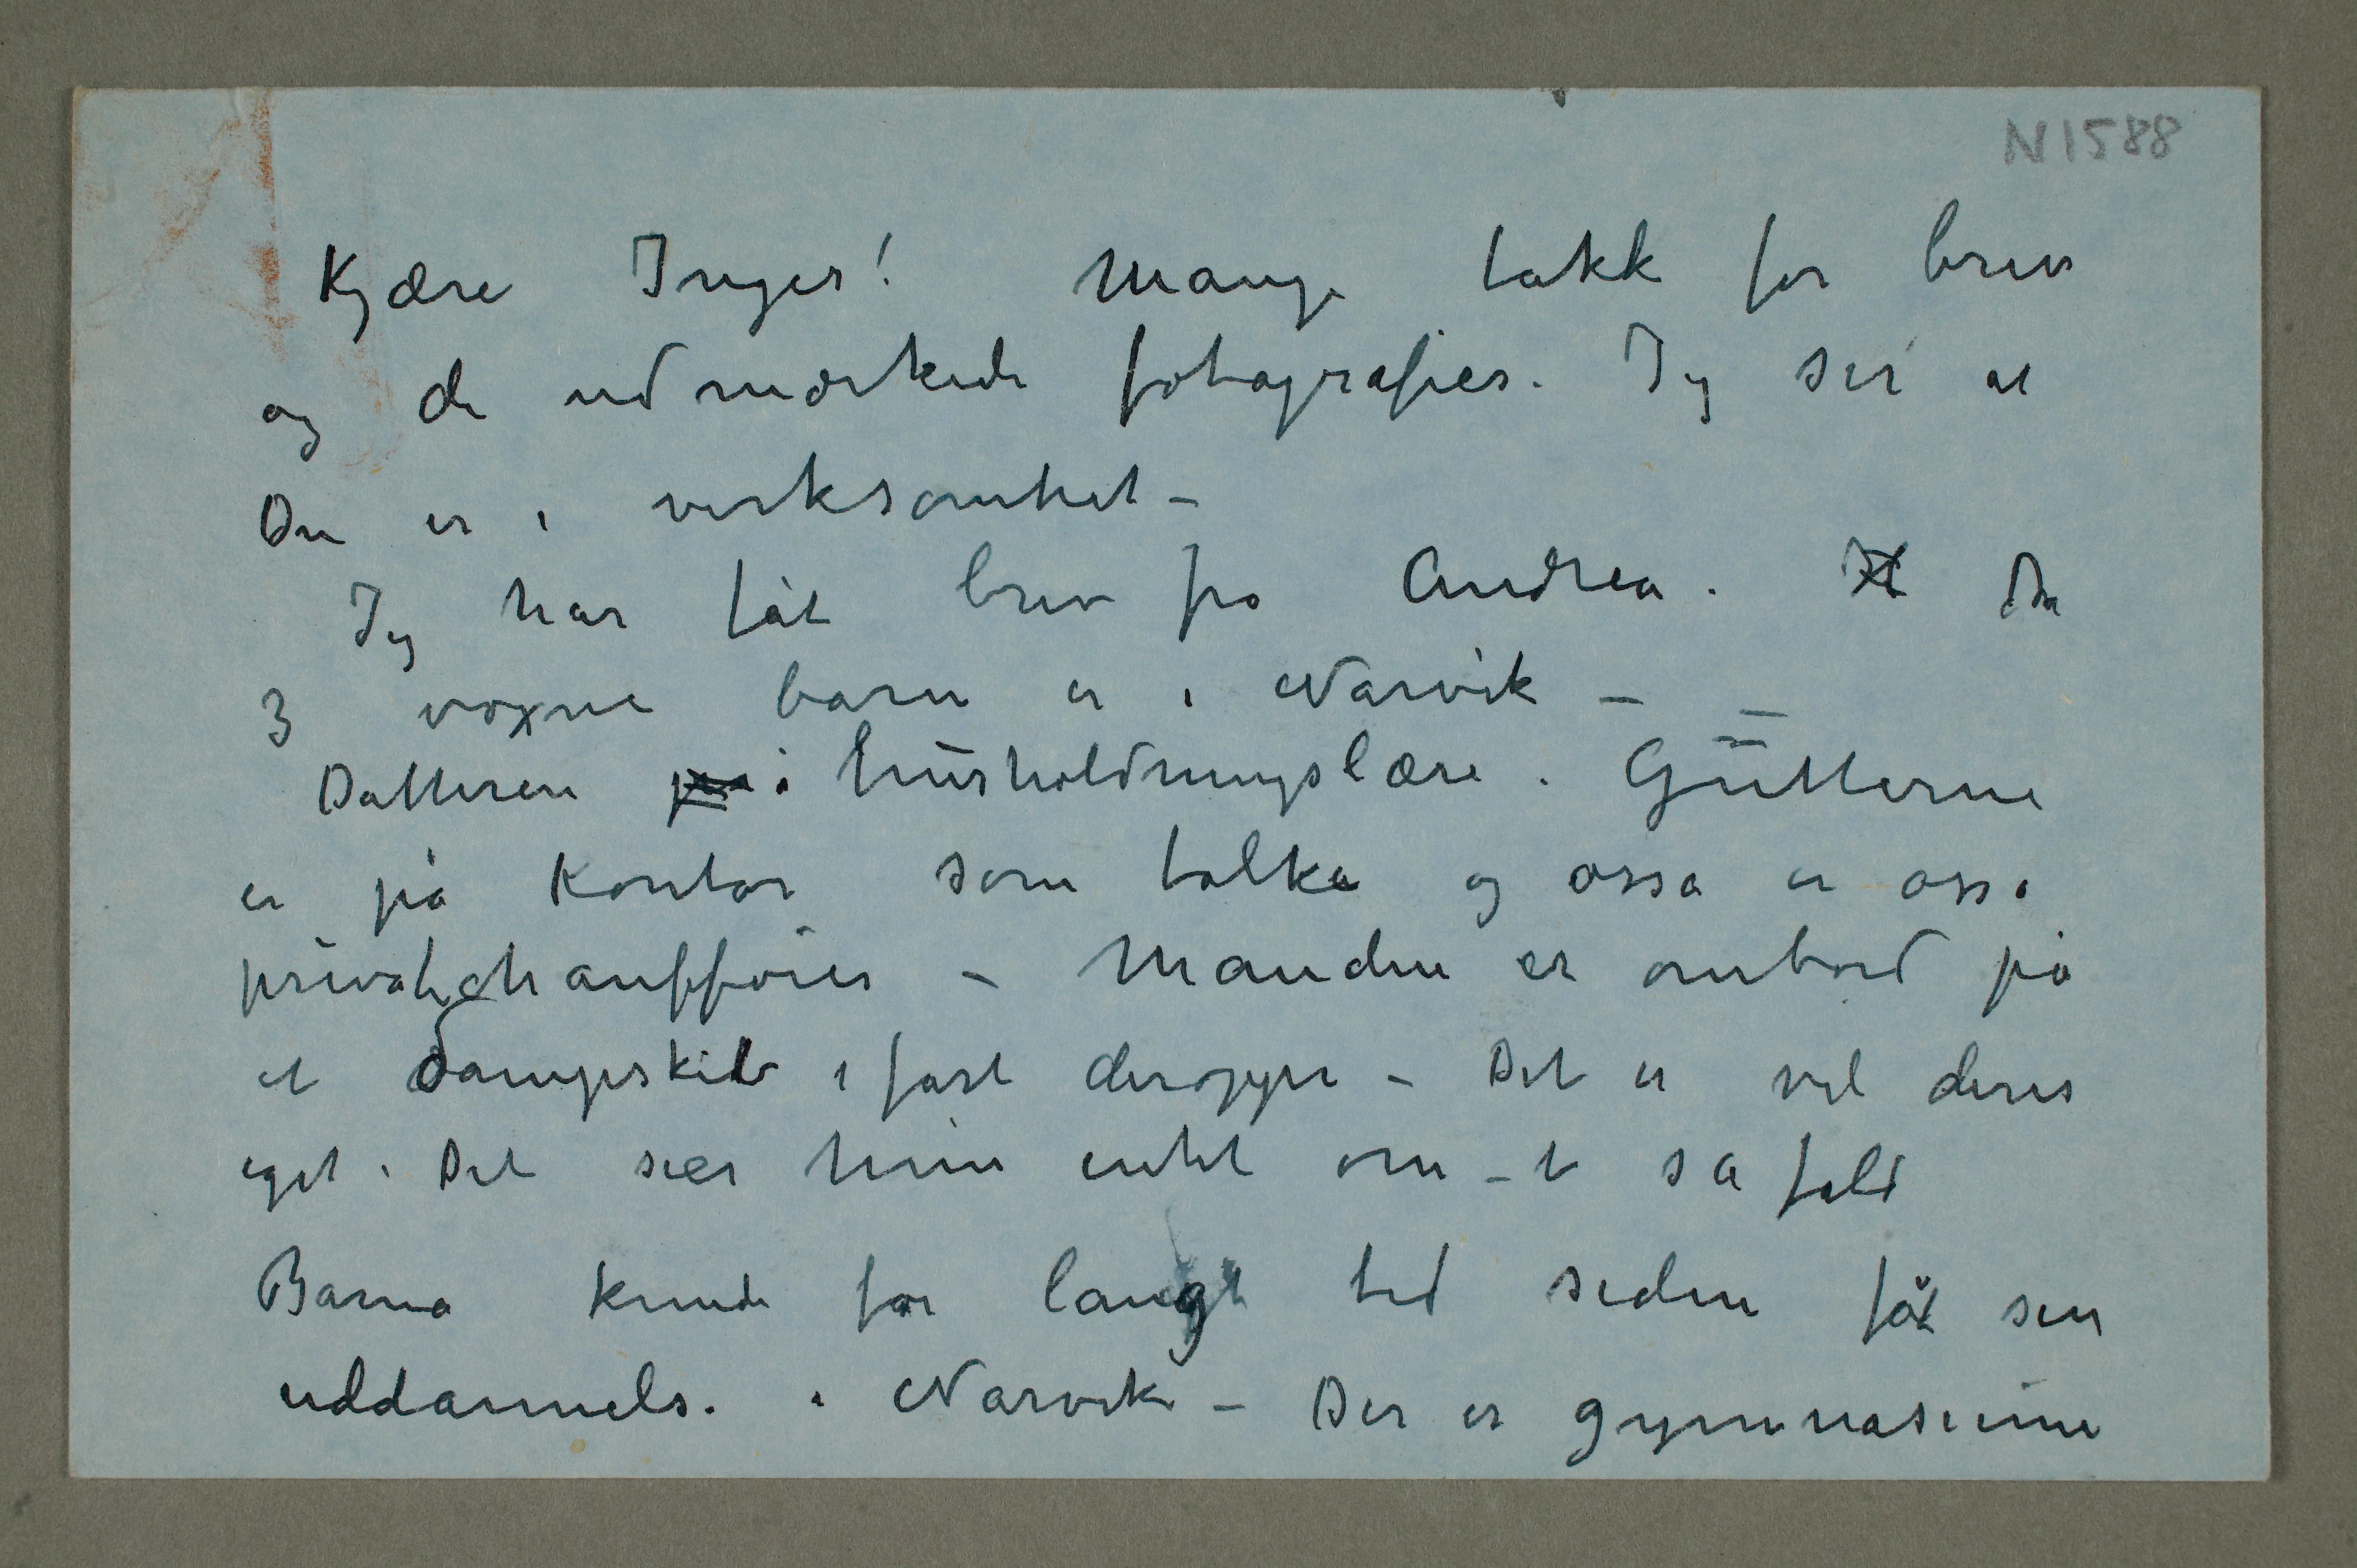 N 1588
Kjære Inger! Mange takk for brev
og de udmærkede fotografier. Jeg ser at
Du er i virksomhet –
Jeg har fåt brev fra Andrea. De
3 voxne barn er i Narvik –
Datteren i husholdningslære. Gutterne
er på kontor som tolke og osså er osså
privatchauffører – Manden er ombord på
et dampskib i fart deroppe – Det er vel deres
eget. Det sier hun intet om – i så fald
Barna kunde for langt tid siden få sin
uddannelse i Narvik – Der er gymnasium